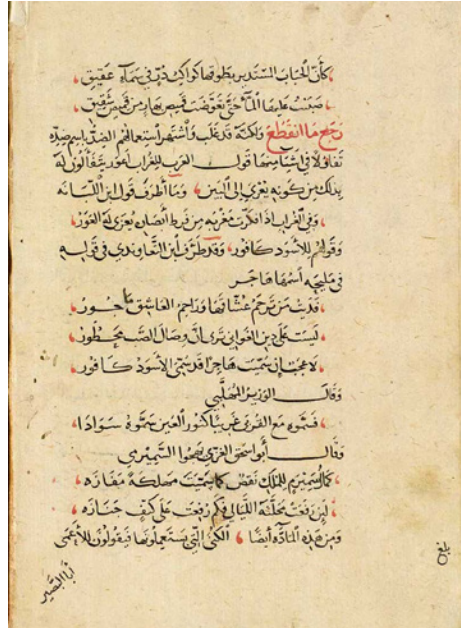 كأن الحباب المستدير بطوقها كواكب در في سماء عقيق
صببت عليها الماء حتى تعوضت قميص بهار من قميص شقيق
رجع ما انقطع ولكنه قد غلب واشتهر استعمالهم الضد باسم ضده
تفاولا في اشيا منها قول العرب للغراب اعور يتفالون له
بذلك من كونه يعزى الى البين وما أظرف قول ابن اللبانه
وفي الغراب اذا فكرت مغربه من فرط ابصاره يعزى له العور
وقولهم للاسود كافور وقد ظرف ابن التعاويذي في قوله
في مليحه اسمها هاجر
ترحم عشاقها وراحم العاشق ماجور
ليست على دين الغواني ترى ان وصال الصب محظور
لا عجب إن سميت هاجرا قد سمي الاسود كافور
وقال الوزير المهلبي
فسموه مع القربى غريبا كنور العين سموه سوادا
وقال أبو اسحق الغزي يهجوا السميرمي
كمال سميرم للملك نقص كما سميت مهلكة مفازه
لئن رفعت محلته الليالي فكم رفعت على كتف جنازه
ومن هذه الماده أيضا الكنى التي يستعملونها فيقولون للأعمى
أبا البصير
بلغ